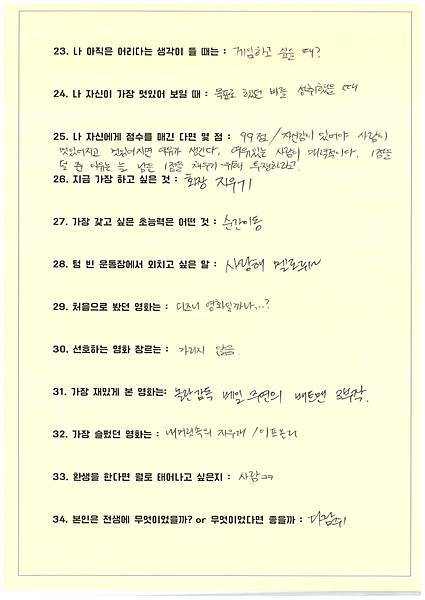 23. 나 아직은 어리다는 생각이 들 때는 : 게임하고 싶을 때?
24. 나 자신이 가장 멋있어 보일 때 : 목표로 했던 바를 성취했을 때
25. 나 자신에게 점수를 매긴 다면 몇 점 : 99점 / 자신감이 있어야 사람이
멋있어지고 멋있어지면 여유가 생긴다. 여유있는 사람이 매력적이다. 1점을
덜 준 이유는 늘 남은 1점을 채우기 위해 투쟁하라고.
26. 지금 가장 하고 싶은 것 : 화장 지우기
27. 가장 갖고 싶은 초능력은 어떤 것 : 순간이동
28. 텅 빈 운동장에서 외치고 싶은 말 : 사랑해 멜로디~
29. 처음으로 봤던 영화는 : 디즈니 영화일까나...?
30. 선호하는 영화 장르는 : 가리지 않음.
31. 가장 재밌게 본 영화는: 놀란감독 베일 주연의 배트맨 3부작.
32. 가장 슬펐던 영화는 : 내 머릿속의 지우개 / 이프온리
33. 환생을 한다면 뭘로 태어나고 싶은지 : 사람ㅋㅋ
34. 본인은 전생에 무엇이었을까? or 무엇이었다면 좋을까 : 다람쥐